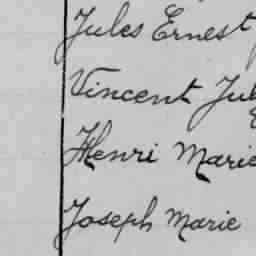 Jules Ernest
Vincent Jul
Henri Marie
Joseph Marie